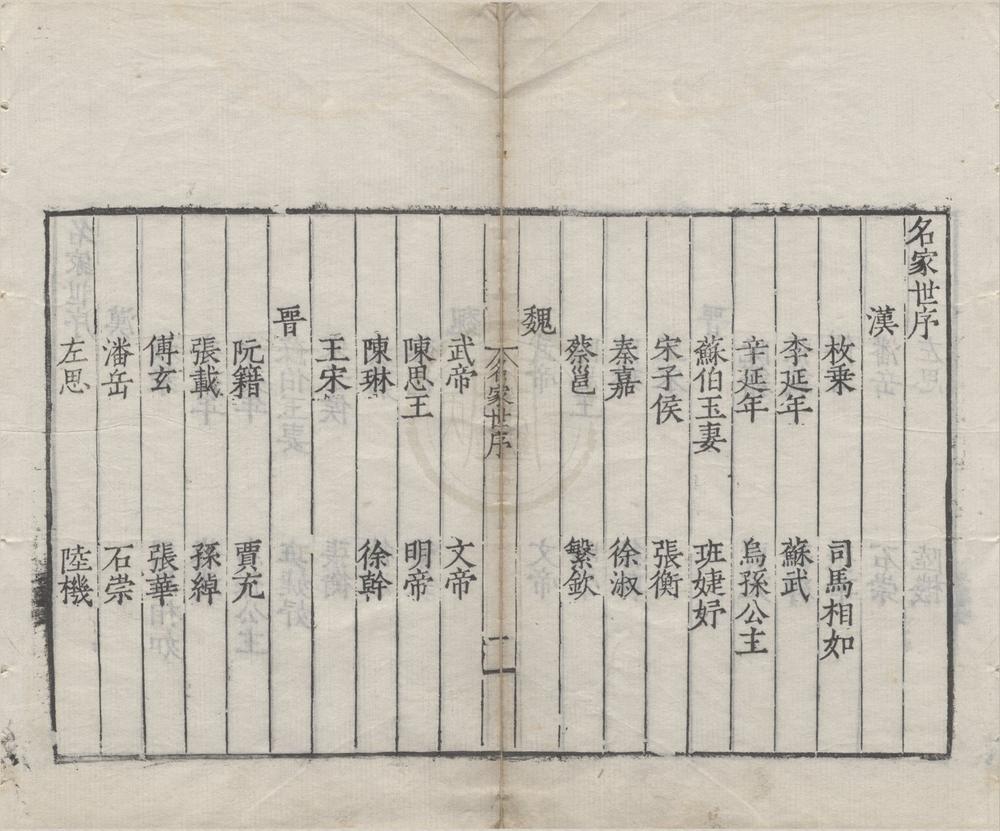 名家世序
漢
枚乘 司馬相如
李延年 蘇武
辛延年 烏孫公主
蘇伯玉妻 班婕妤
宋子侯 張衡
秦嘉 徐淑
蔡邕 繁欽
魏
名家世序 二
武帝 文帝
陳思王 明帝
陳琳 徐幹
王宋
晉
阮籍 賈充
張載 孫綽
傅玄 張華
潘岳 石崇
左思 陸機